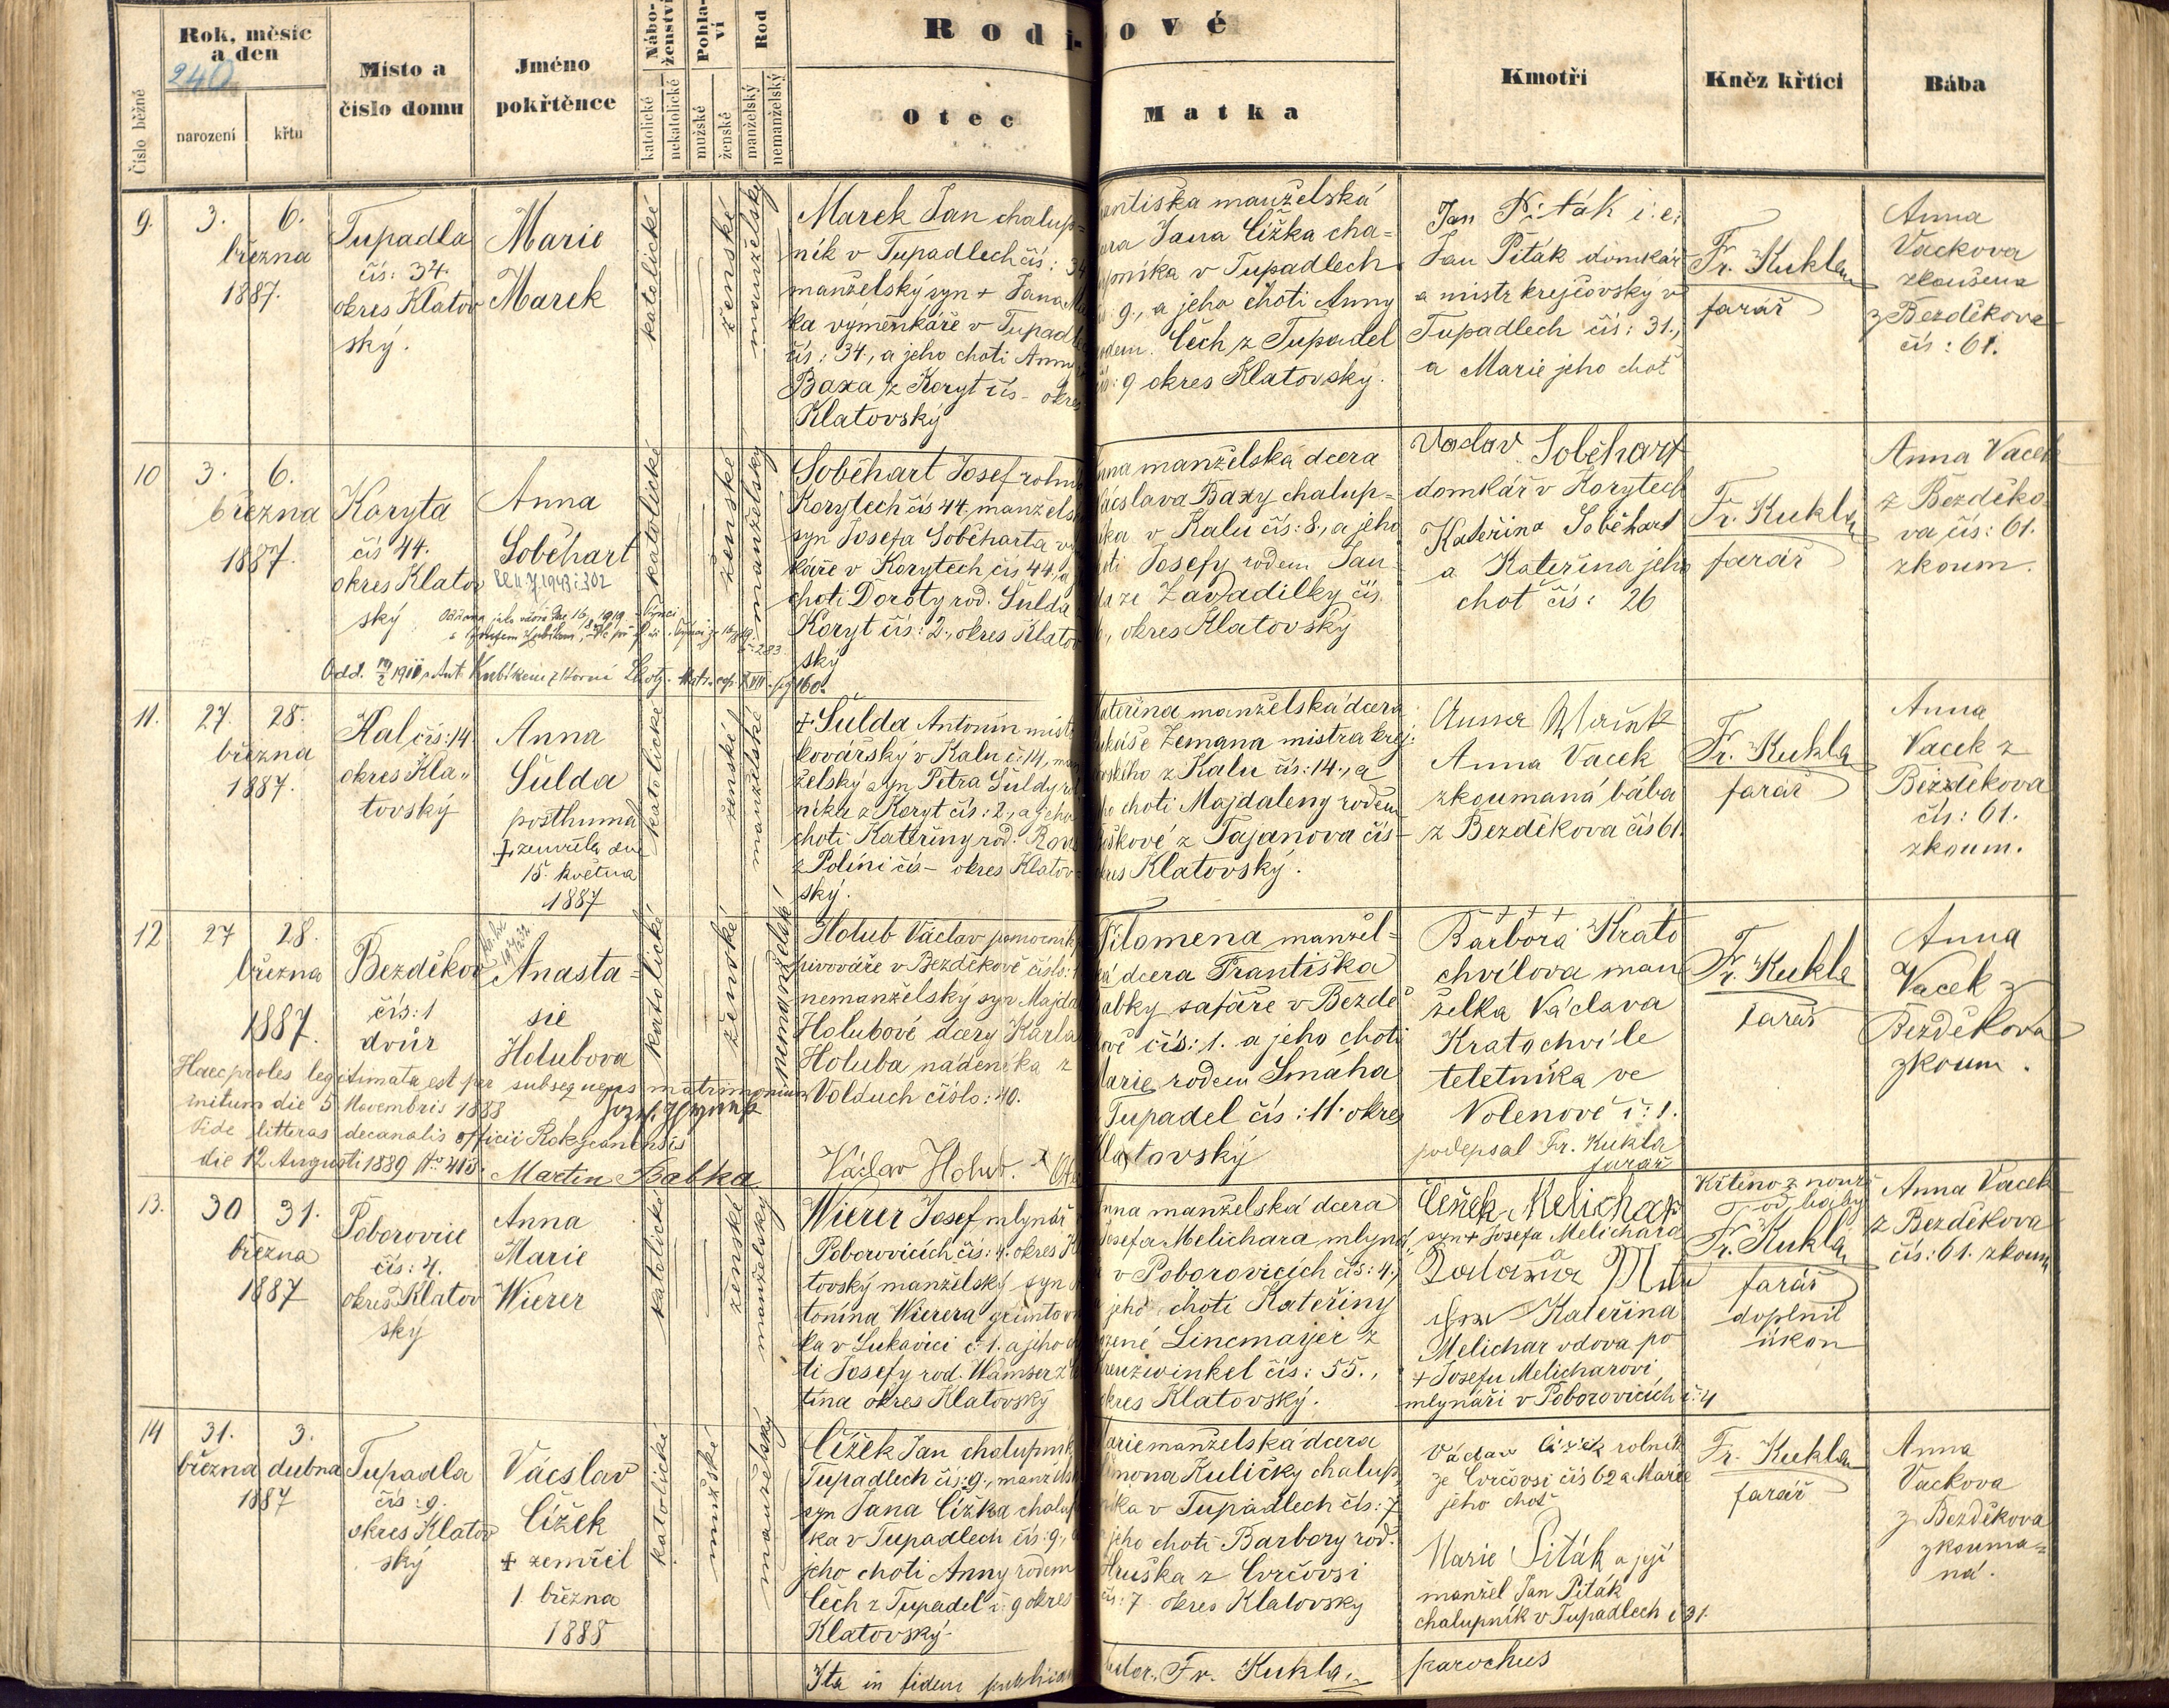 Rok, měsíc
a den
240
narození
křtu
Číslo běžné
Místo a
číslo domu
Jméno
pokřtěnce
Nábo-
ženství
katolické
nekatolické
Pohla-
ví
mužské
ženské
Rod
manželský
nemanželský
Rodi-
ové
Otec
Matka
Kmotři
Kněz křtící
Bába
9.
3. 6.
března
1887.
Tupadla
čís: 34.
okres Klatov
ský.
Marie
Marek
katolické
ženské
manželský
Marek Jan chalup=
ník v Tupadlech čís: 34
manželský syn + Jana
ka výměnkáře v Tupadl
čís: 34., a jeho choti Anny
Baxa z Koryt čís - okres
Klatovský
antiška manželská
era Jana Čížka cha=
lupníka v Tupadlech
9., a jeho choti Anny
rodem. Čech z Tupadel
čís: 9 okres Klatovský.
Jan Piták i. e.
Jan Piták domkář
a mistr krejčovský v
Tupadlech čís: 31.,
a Marie jeho choť
Fr. Kukla
farář
Anna
Vackova
zkoušena
z Bezděkova
čís: 61.
10
3. 6.
března
1887.
Koryta
čís 44.
okres Klatov
ský
Anna
Soběhart
katolické
ženské
manželský
Odd. 1910 s Ant. Kubíkem z Horní
160.
Soběhart Josef rolník
Korytech čís 44, manžels
syn Josefa Soběharta vý
káře v Korytech čís 44, a
choti Doroty rod. Šulda
Koryt čís: 2., okres Klatov
ský
manželská dcera
Vácslava Baxy chalup=
níka v Kalu čís: 8., a jeho
choti Josefy rodem Jan
da ze Zavadilky čís.
, okres Klatovský
Václav Soběhart
domkář v Korytech
Kateřina Soběhart
a Kateřina jeho
choť čís: 26
Fr. Kukla
farář
Anna Vacek
z Bezděko=
va čís: 61.
zkoum.
11.
27. 28.
března
1887.
Kal čís: 14
okres Kla"
tovský
Anna
Šulda
posthuma
+ zemřela dne
15. května
1887
katolické
ženské
manželské
+ Šulda Antonín mistr
kovářský v Kalu č: 14, man
želský syn Petra Šuldy rol
níka z Koryt čís: 2., a jeho
choti Kateřiny rod.
z Políni čís - okres Klatov=
ský.
Kateřina manželská dcera
Lukáše Zemana mistra krej.
čovského z Kalu čís: 14., a
jeho choti Majdaleny rodem
z Tajanova čís -
okres Klatovský.
Anna Vacek
zkoumaná bába
z Bezděkova čís 61.
Fr. Kukla
farář
Anna
Vacek z
Bezděkova
čís: 61.
zkoum.
12
27 28.
března
1887.
Bezděkov
čís: 1
dvůr
Anasta=
sie
Holubova
katolické
ženské
nemanželské
Haec proles legitimata est per subsequens matrimonium
initum die 5 Novembris 1888
Vide litteras decanalis officii Rokycanensis
die 12 Augusti 1889 No 413.
Martin Babka
Holub Václav pomocník
pivováře v Bezděkově číslo: 1
nemanželský syn Majda
Holubové dcery Karla
Holuba nádeníka z
Volduch číslo: 40.
Václav Holub.
Filomena manžel=
ská dcera Františka
Babky šafáře v Bezdě
kově čís: 1. a jeho choti
Marie rodem Smáha
Tupadel čís: 11. okres
Klatovský
+ + +
Barbora Krato
chvílova man
želka Václava
Kratochvíle
teletníka ve
Volenově č: 1.
podepsal Fr. Kukla
farář
Fr. Kukla
farář
Anna
Vacek z
Bezděkova
zkoum.
13.
30 31.
března
1887
Poborovice
čís: 4.
okres Klatov
ský
Anna
Marie
Wierer
katolické
ženské
manželský
Wierer Josef mlynář
Poborovicích čís: 4. okres Kla
tovský manželský syn An
tonína Wierera gruntovní
ka v Lukavici č: 1. a jeho cho
ti Josefy rod. Wamser z
tína okres Klatovský
Anna manželská dcera
Josefa Melichara mlynář
v Poborovicích čís: 4.,
jeho choti Kateřiny
rozené Lincmayer z
Kreuzwinkel čís: 55.,
okres Klatovský.
Čeněk Melichar
syn + Josefa Melichara
a
Kateřina
Melichar vdova po
+ Josefu Melicharovi
mlynáři v Poborovicích č: 4
Křtěno z nouze
od báby
Fr. Kukla
farář
doplnil
úkon
Anna Vacek
z Bezděkova
čís: 61. zkoum
14
31. 3.
března dubna
1887
Tupadla
čís: 9.
okres Klatov
ský
Vácslav
Čížek
+ zemřel
1. března
1888
katolické
mužské
manželský
Čížek Jan chalupník
Tupadlech čís: 9., manžels
syn Jana Čížka chalup
ka v Tupadlech čís: 9.,
jeho choti Anny rodem
Čech z Tupadel č: 9 okres
Klatovský.
Marie manželská dcera
Šimona Kuličky chalup
níka v Tupadlech čís: 7
jeho choti Barbory rod.
Hruška z Crčovsi
čís: 7. okres Klatovský
Václav Čížek rolník
ze Crčovsi čís 62 a Marie
jeho choť
Marie Piták a její
manžel Jan Piták
chalupník v Tupadlech č 31.
Fr. Kukla
farář
Anna
Vackova
z Bezděkova
zkouma=
ná.
Ita in fidem publicam
Fr. Kukla.
parochus